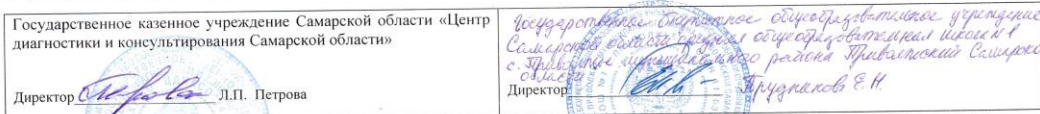 Государственное казенное учреждение Самарской области «Центр
диагностики и консультирования Самарской области»
Директор Л.П. Петрова
Государственное бюджетное общеобразовательное учреждение
Самарской области средняя общеобразовательная школа №1
с. Приволжье муниципального района Приволжский Самарской
области
Директор Трудникова Е.Н.